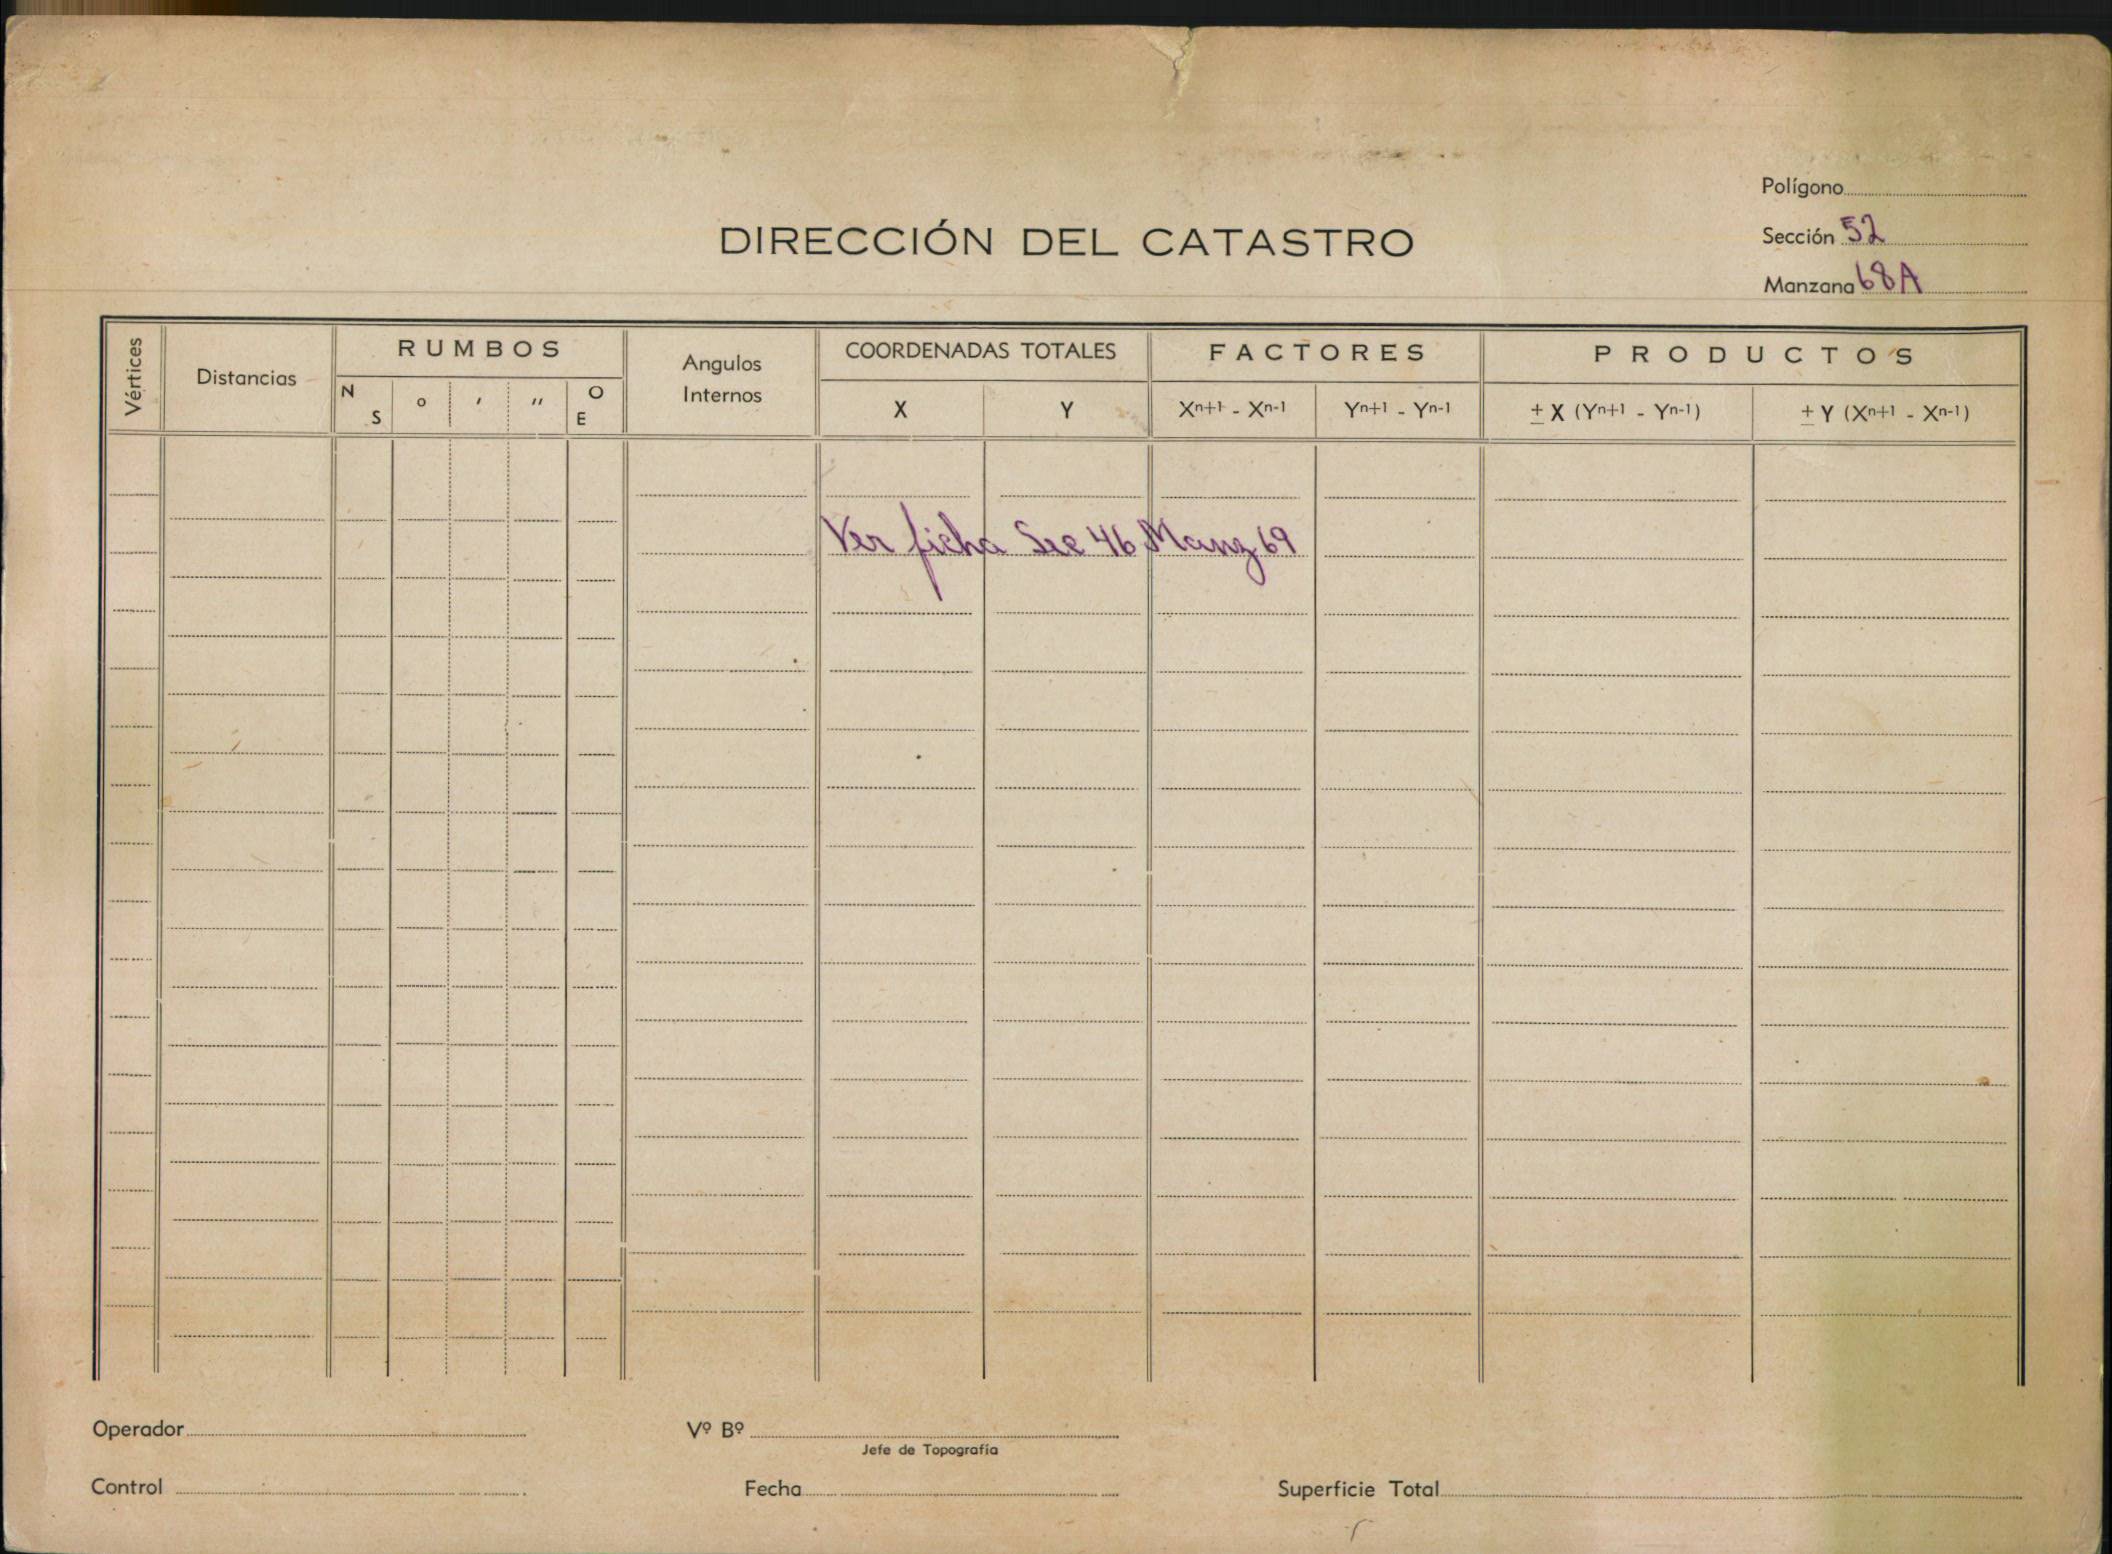 Polígono
DIRECCIÓN DEL CATASTRO
Sección 52
Manzana 68A
Vértices
Distancias
RUMBOS
N S
o
'
"
O E
Angulos Internos
COORDENADAS TOTALES
X
Y
FACTORES
Xn+1 - Xn-1
Yn+1 - Yn-1
PRODUCTOS
± X (Yn+1 - Yn-1)
± Y (Xn+1 - Xn-1)
Ver ficha Sec 46 Manz 69
Operador
Vº Bº
Jefe de Topografía
Control
Fecha
Superficie Total